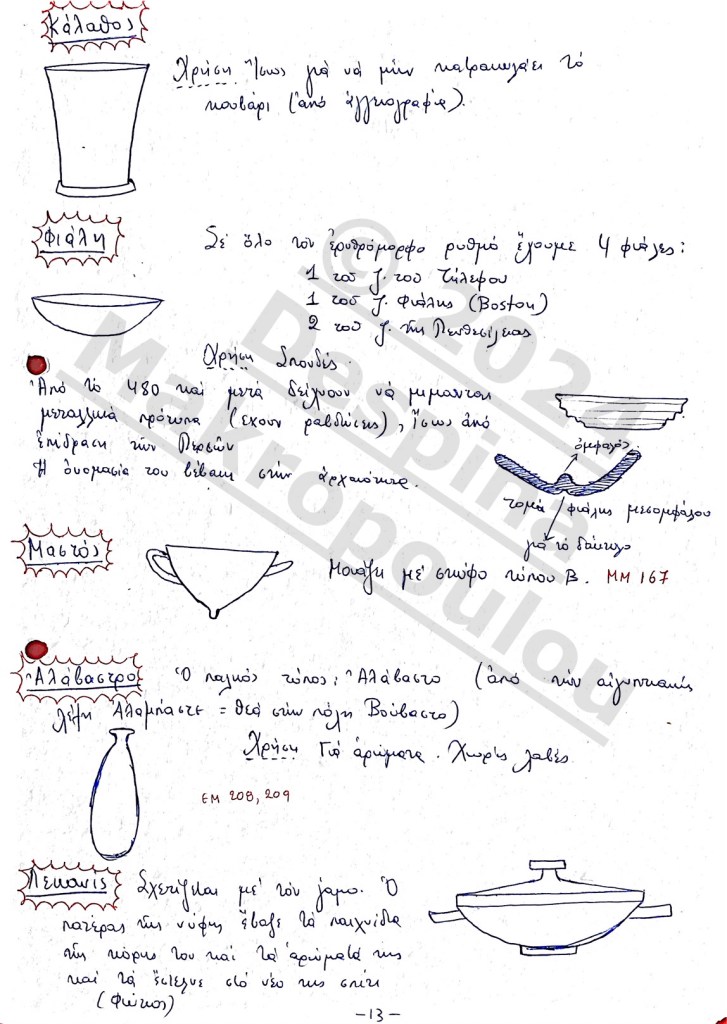 Κάλαθος
Χρήση Ἴσως γιὰ νὰ μὴν κατρακυλάει τὸ
κουβάρι (ἀπὸ ἀγγειογραφία).
Φιάλη
Σὲ ὅλο τὸν ἐρυθρόμορφο ρυθμὸ ἔχουμε 4 φιάλες:
1 τοῦ ζ. τοῦ Τήλεφου
1 τοῦ ζ. Φιάλης (Boston)
2 τοῦ ζ. τῆς Πενθεσίλειας
Χρήση Σπονδές.
Ἀπὸ τὸ 480 καὶ μετὰ δείχνουν νὰ μιμοῦνται
μεταλλικὰ πρότυπα (ἔχουν ραβδώσεις), ἴσως ἀπὸ
ἐπίδραση τῶν Περσῶν
Ἡ ὀνομασία του βέβαιη στὴν ἀρχαιότητα.
ὀμφαλός
τομὰ φιάλης μεσομφάλου
γιὰ τὸ δάκτυλο
Μαστός
Μοιάζει μὲ σκύφο τύπου Β. ΜΜ 167
Ἀλάβαστρο
Ὁ παλιὸς τύπος: Ἀλάβαστο (ἀπὸ τὴν αἰγυπτιακὴ
λέξη Ἀλαμπάστε = θεὰ στὴν πόλη Βούβαστο)
Χρήση Γιὰ ἀρώματα. Χωρὶς λαβές.
ΕΜ 208, 209
Λεκανὶς
Σχετίζεται μὲ τὸν γάμο. Ὁ
πατέρας τῆς νύφης ἔβαζε τὰ παιχνίδια
τῆς κόρης του καὶ τὰ ἀρώματά της
καὶ τὰ ἔστελνε στὸ νέο της σπίτι
(Φώτιος)
-13-
© 2024
Despina
Makropoulou